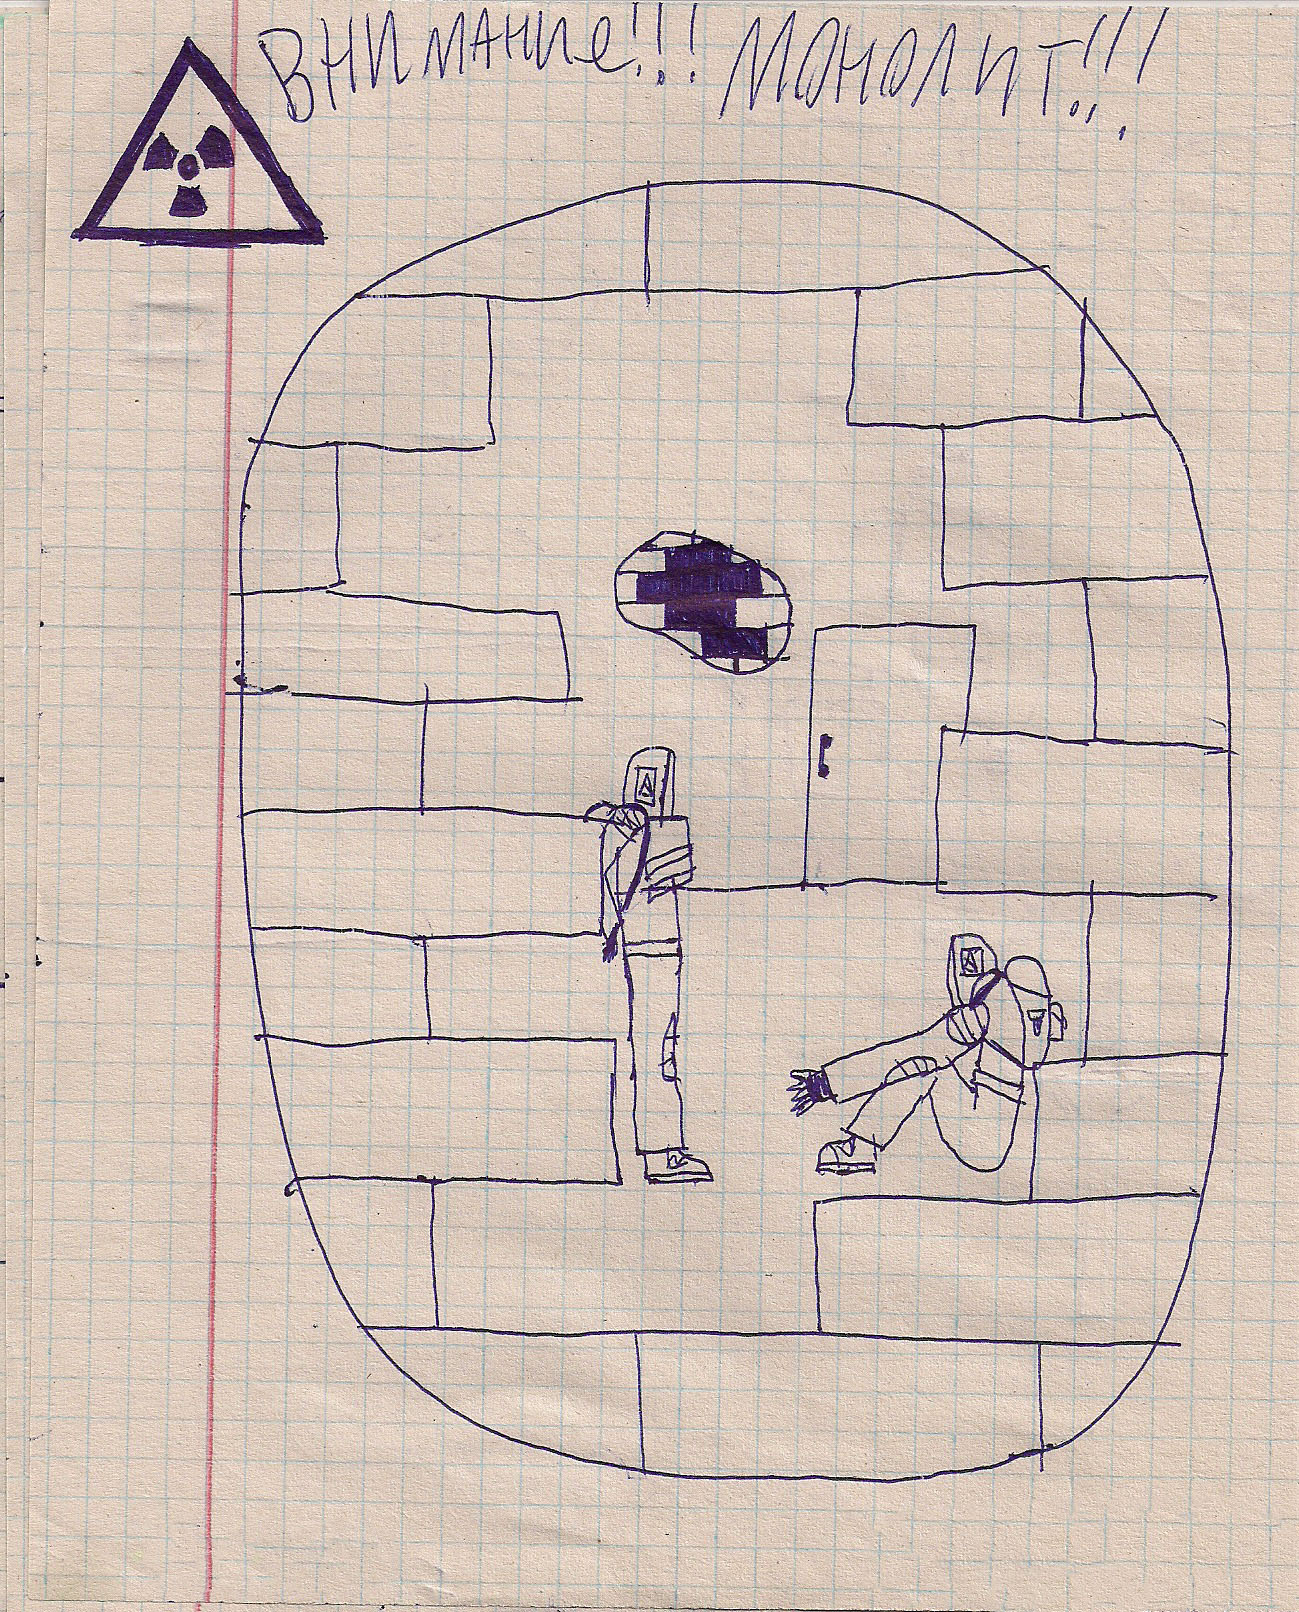 Внимание!!! Монолит!!!